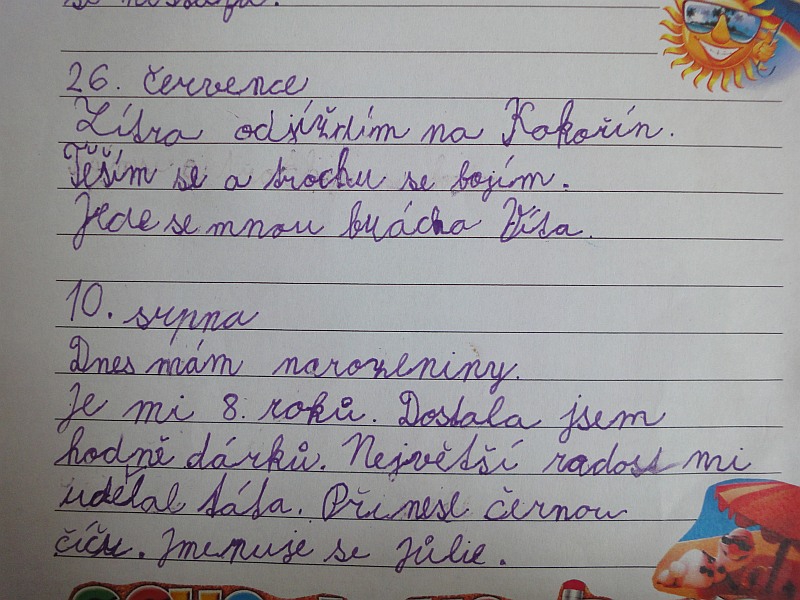 26. července
Zítra odjíždím na Kokořín.
Těším se a trochu se bojím.
Jede se mnou brácha Víťa.
10. srpna
Dnes mám narozeniny.
Je mi 8. roků. Dostala jsem
hodně dárků. Největší radost mi
udělal táta. Přinesl černou
číču. Jmenuje se Jůlie.